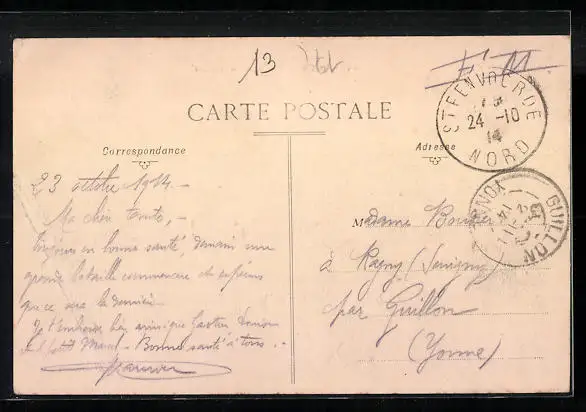 13
F. M.
CARTE POSTALE
STEENVOORDE
24 -10
14
NORD
Correspondance
Adresse
23 octobre 1914 -
Ma chère tante, -
Toujours en bonne santé, demain une
grande bataille commencera et espérons
que ce sera la dernière
Je t'embrasse bien ainsi que Gaston
et petit Marcel - Bonne santé à tous. -
Madame
à Ragny (Savigny)
par Guillon
(Yonne)
GUILLON
YONNE